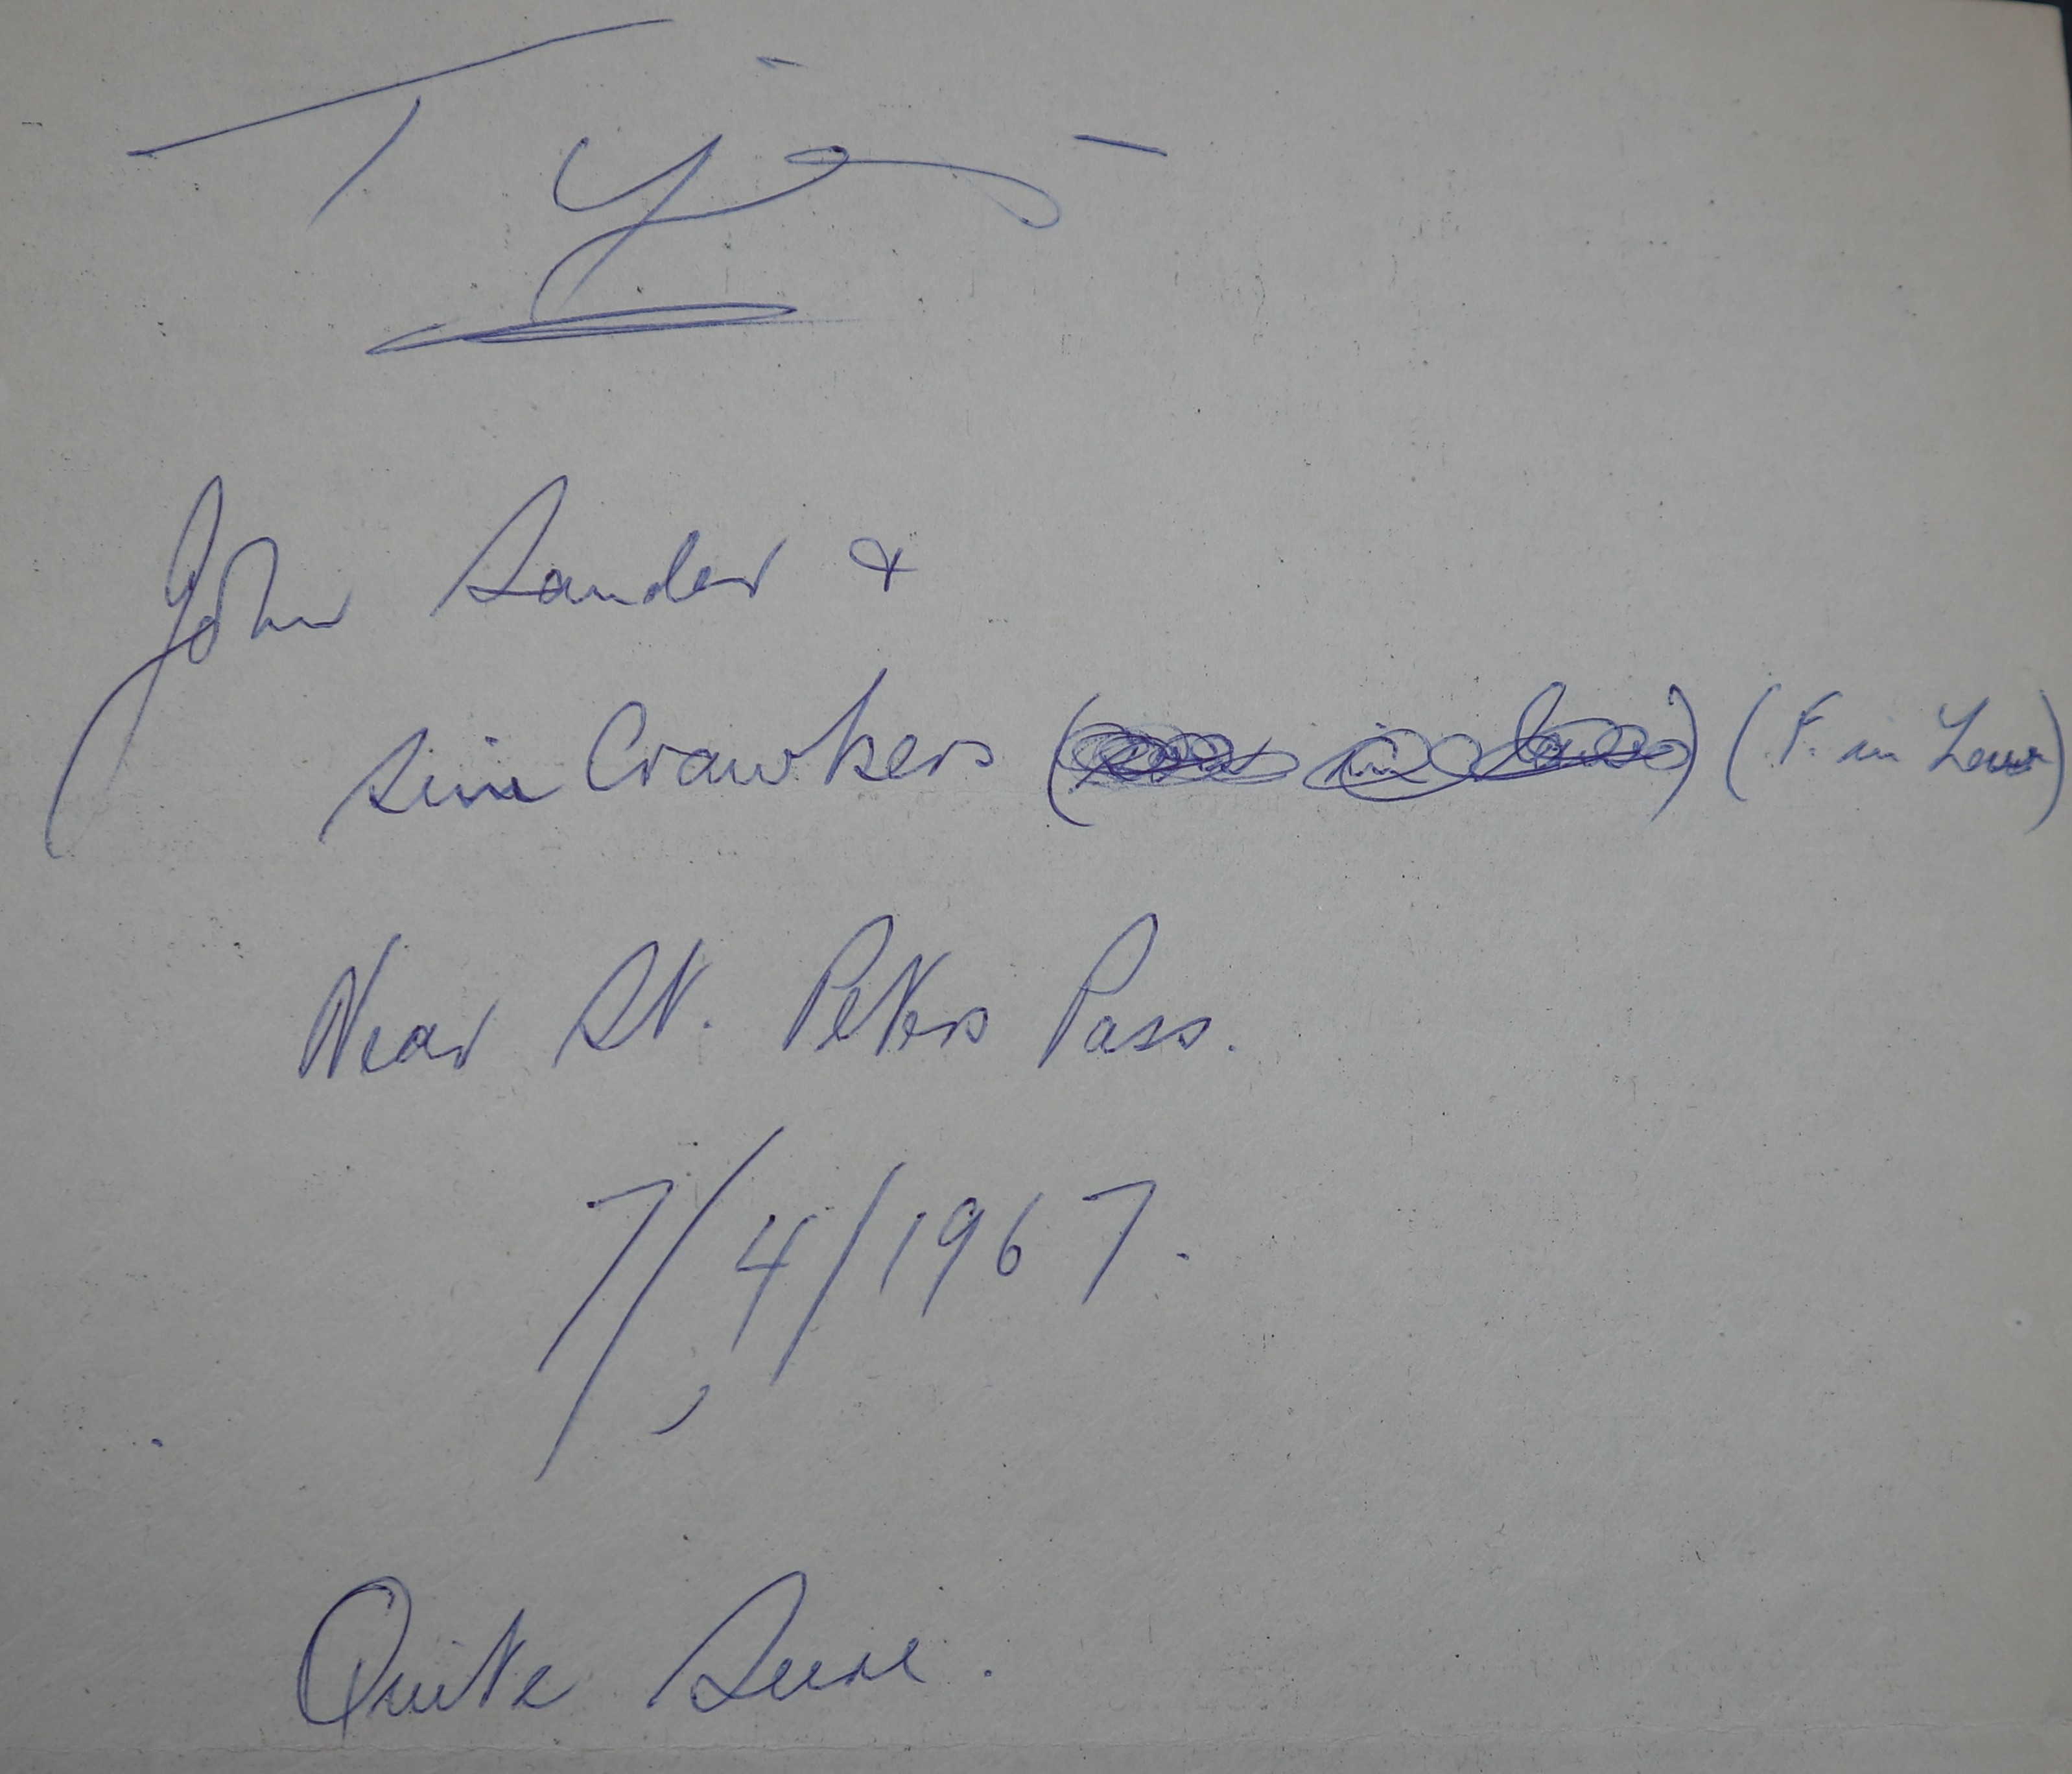 Tiger
John Sander &
Sim Crawkers (F. in Law)
Near St. Peters Pass.
7/4/1967.
Quite Sure.